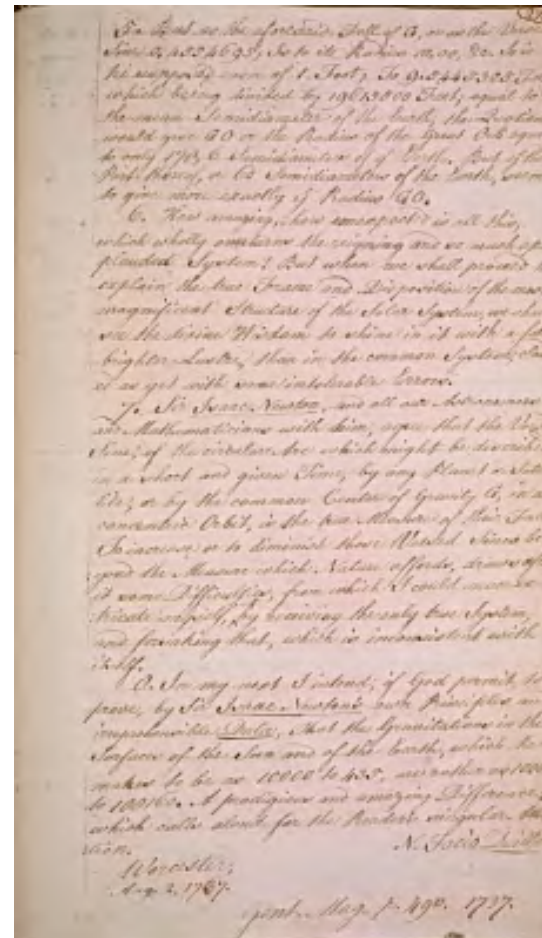 5. But as the aforesaid Fall of G, or as the Versed
Sine 0,4554695, is to its Radius 10,00, &c. So is
the supposed one of 1. Foot, To
which being divided by 19615800 Feet, equal to
the mean Semidiameter of the Earth, the Quotient
would give GO or the Radius of the Great Orb equal
to only Semidiameters of ye Earth. But if the
or 60 Semidiameters of the Earth,
to give more exactly ye Radius GO.
6. How amazing, how unexpected is all this,
which wholly overturns the reigning and so much ap
plauded System! But when we shall proceed to
explain the true Frame and Disposition of the most
magnificent Structure of the Solar System, we shall
see the divine Wisdom to shine in it with a far
brighter Lustre, than in the common System,
as yet with some intolerable Errors.
7. Sir Isaac Newton, and all our Astronomers
and Mathematicians with him, agree that the Versed
Sine, of the circular Arc which might be describ'd
in a short and given Time, by any Planet or Satel
lite; or by the common Center of Gravity G, in a
concentric Orbit, is the true Measure of their Fall.
To increase or to diminish those Versed Sines be
yond the Measure which Nature affords, draws after
it some Difficulties, from which I could
tricate myself, by receiving the only true System,
and forsaking that, which is inconsistent with
itself.
8. In my next I intend, if God permit, to
prove, by Sir Isaac Newton's own Principles and
Data, that the Gravitations in the
Surfaces of the Sun and of the Earth, which he
makes to be as 10000 to 435, are rather as 10000
to A prodigious and amazing Difference,
which calls aloud for the Reader's singular Atten
tion.
N. Facio Duillier
Worcester,
Aug. 2, 1737.
Gent. Mag. p. 490. 1737.